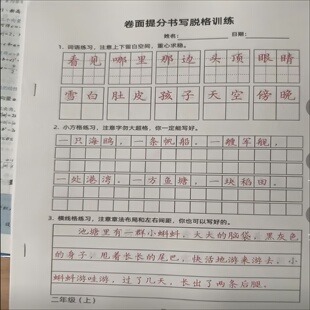 卷面提分书写脱格训练
姓名： 日期：
1. 词语练习，注意上下留白空间，重心求稳。
看见 哪里 那边 头顶 眼睛
雪白 肚皮 孩子 天空 傍晚
2. 小方格练习，注意字勿大超格，你一定能写好。
一只海鸥，一条帆船，一艘军舰，
一处港湾，一方鱼塘，一块稻田，
3. 横线格练习，注意章法布局和左右间距，你也可以写好的。
池塘里有一群小蝌蚪，大大的脑袋，黑灰色
的身子，甩着长长的尾巴，快活地游来游去。小
蝌蚪游哇游，过了几天，长出了两条后腿。
二年级（上）